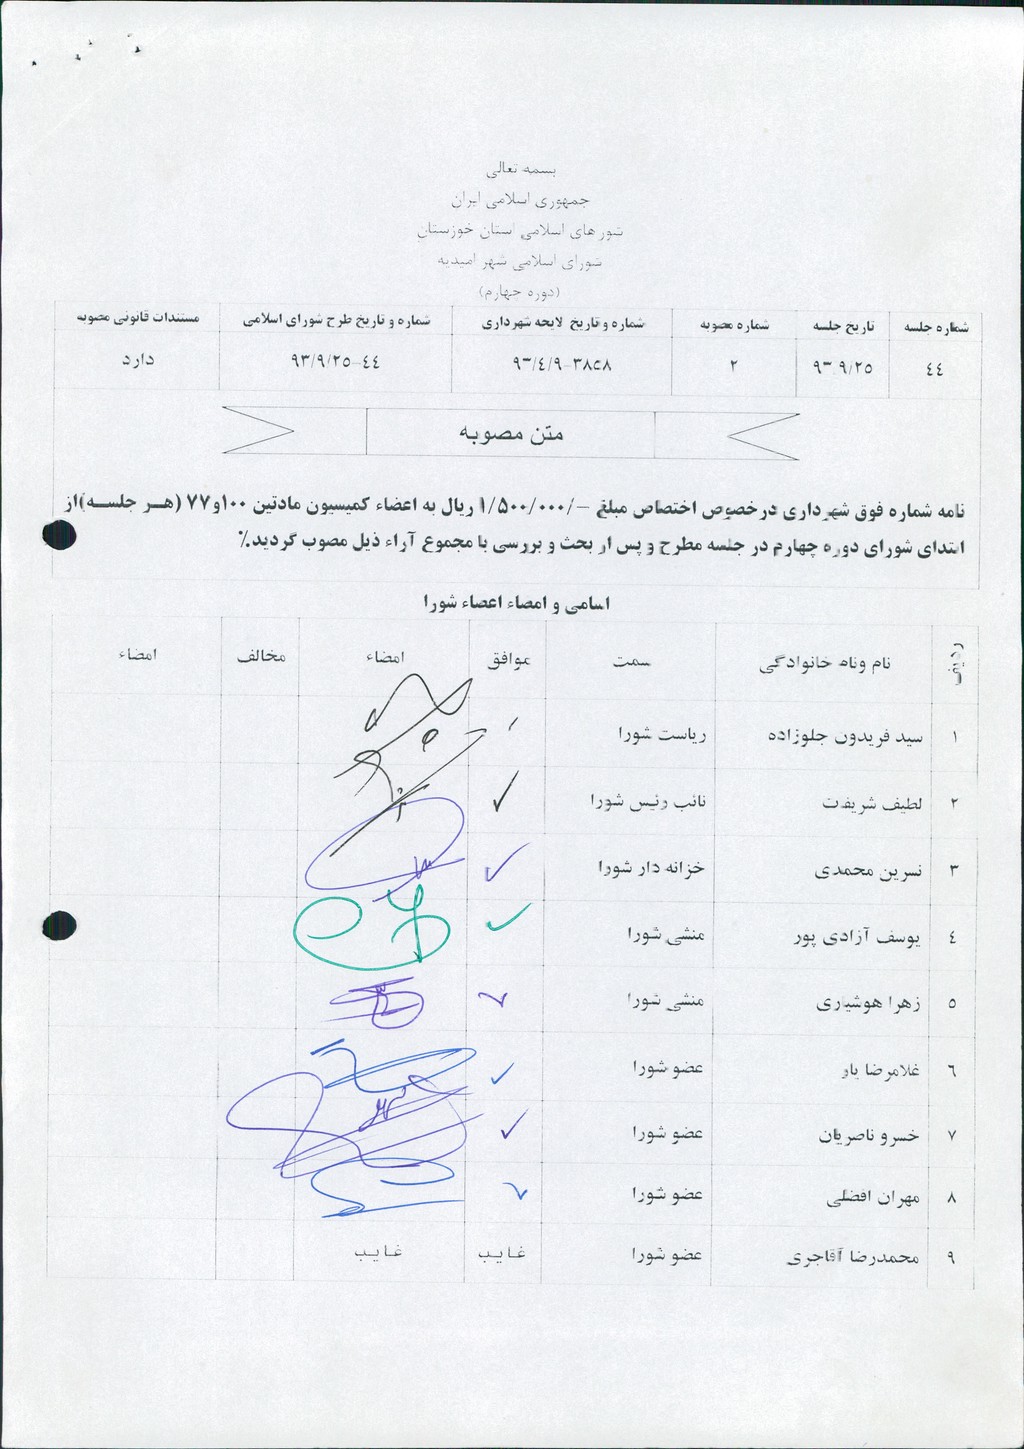 بسمه تعالی
جمهوری اسلامی ایران
شورهای اسلامی استان خوزستان
شورای اسلامی شهر امیدیه
(دوره چهارم)
شماره جلسه تاریخ جلسه شماره مصوبه شماره و تاریخ لایحه شهرداری شماره و تاریخ طرح شورای اسلامی مستندات قانونی مصوبه
٤٤ ۹۳/۹/۲۵ ۲ ۹۳/٤/۹-۳۸۵۸ ۹۳/۹/۲۵-٤٤ دارد
متن مصوبه
نامه شماره فوق شهرداری درخصوص اختصاص مبلغ -/۱/۵۰۰/۰۰۰ ریال به اعضاء کمیسیون مادتین ۱۰۰و۷۷ (هر جلسه)از
ابتدای شورای دوره چهارم در جلسه مطرح و پس از بحث و بررسی با مجموع آراء ذیل مصوب گردید.٪
اسامی و امضاء اعضاء شورا
ردیف نام ونام خانوادگی سمت موافق امضاء مخالف امضاء
۱ سید فریدون جلوزاده ریاست شورا
۲ لطیف شریفات نائب رئیس شورا ✓
۳ نسرین محمدی خزانه دار شورا ✓
٤ یوسف آزادی پور منشی شورا ✓
۵ زهرا هوشیاری منشی شورا ✓
٦ غلامرضا یار عضو شورا ✓
۷ خسرو ناصریان عضو شورا ✓
۸ مهران افضلی عضو شورا ✓
۹ محمدرضا آقاجری عضو شورا غایب غایب